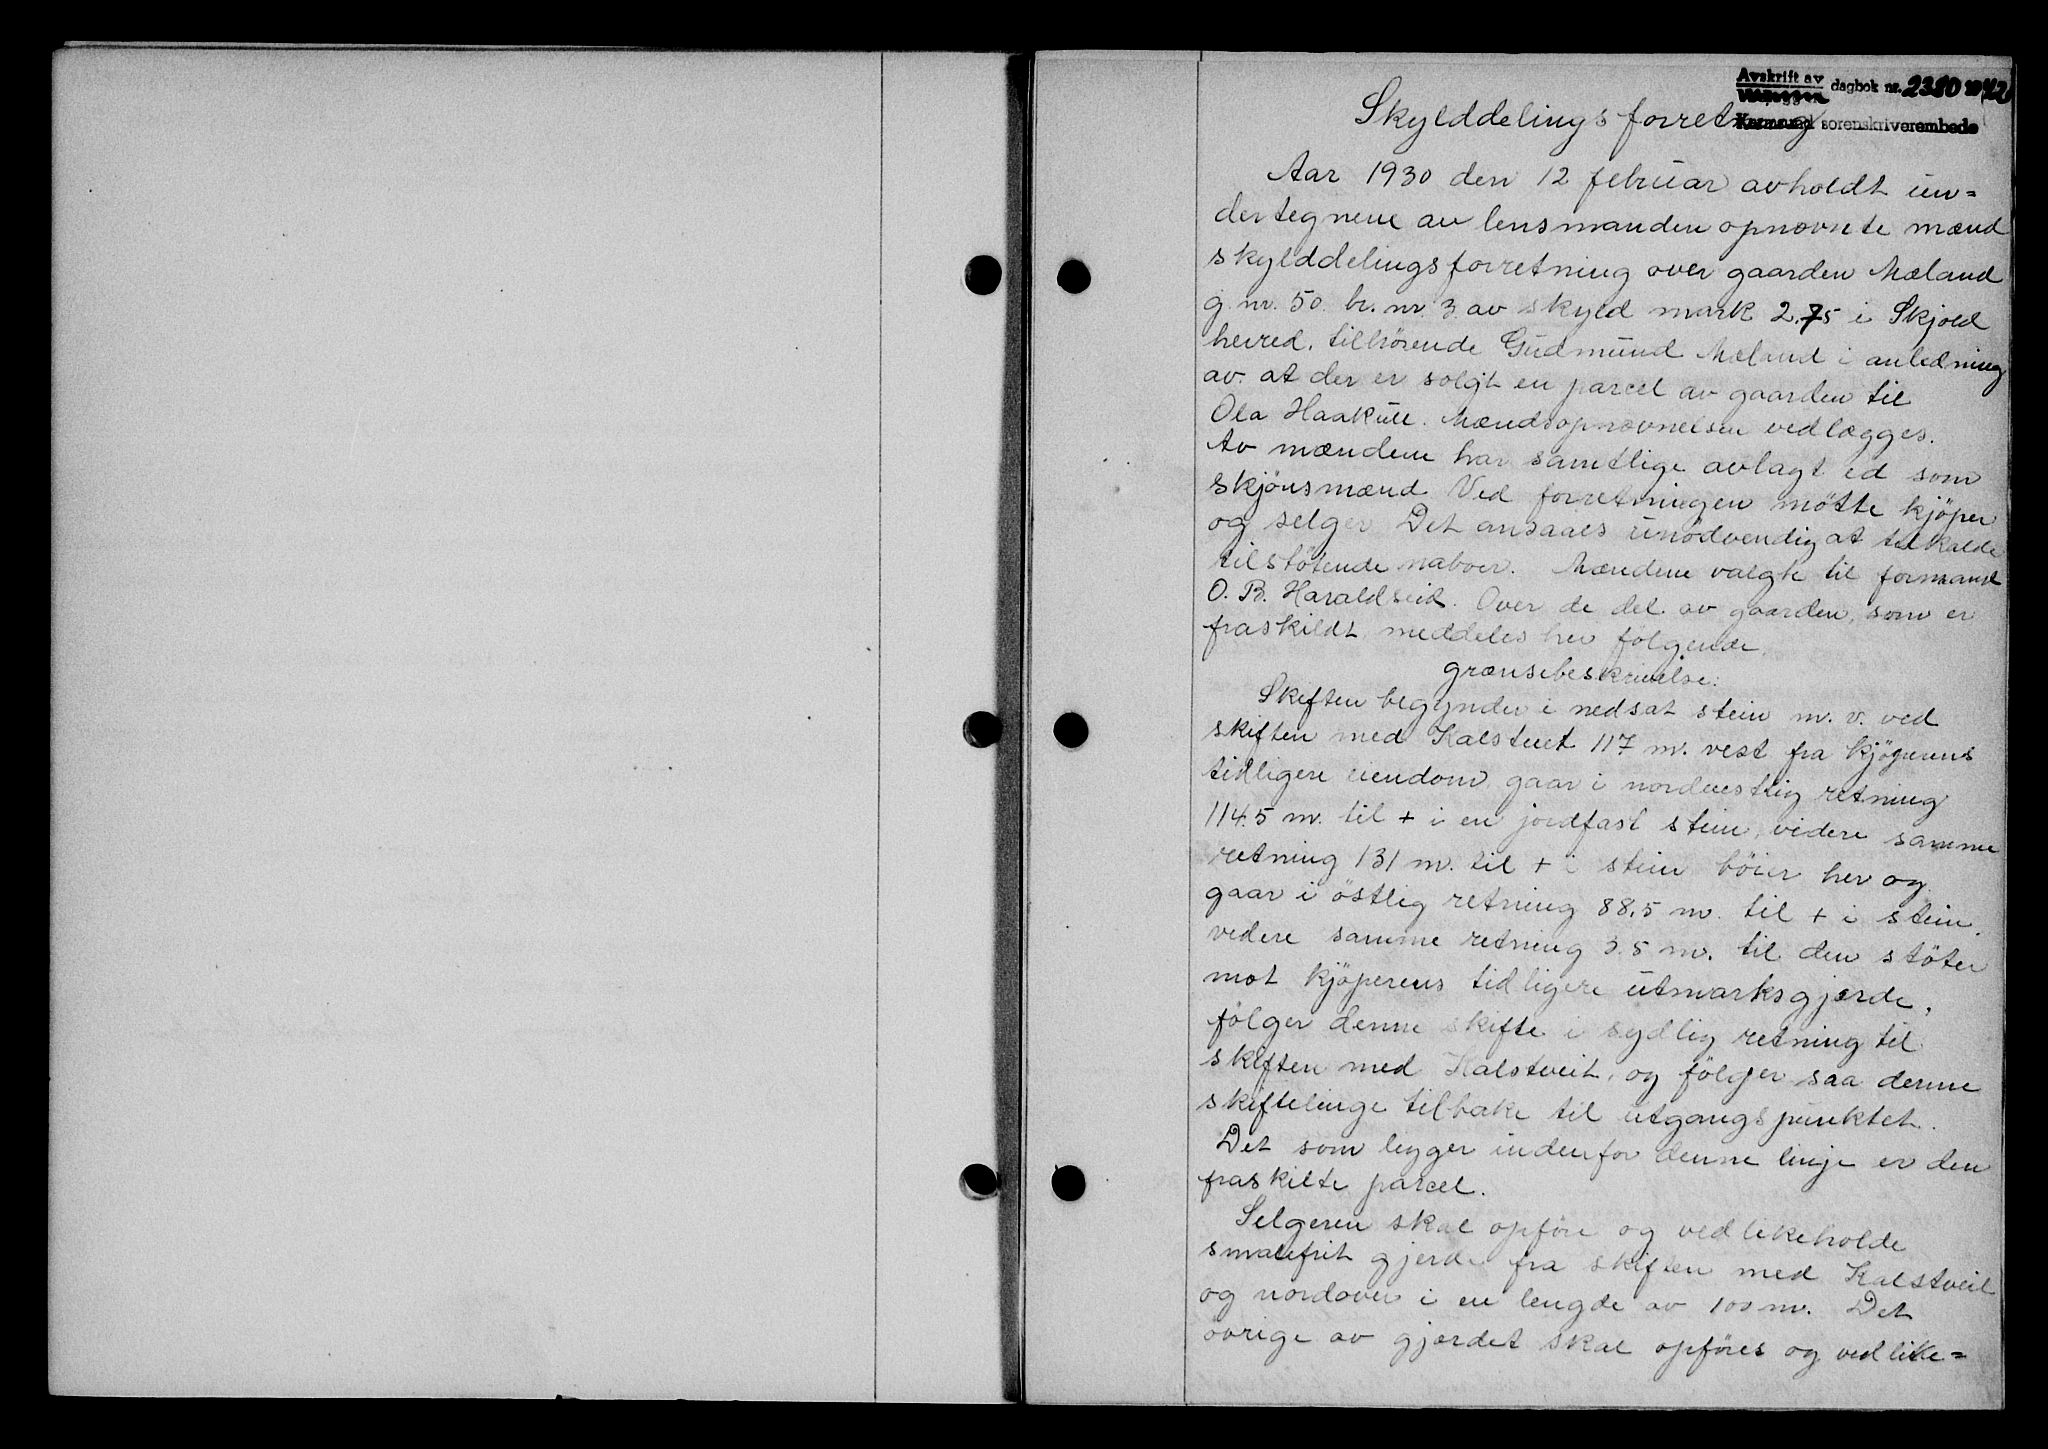 Avskrift av dagbok nr. 2380 1942
Karmsund sorenskriverembede
Skylddelingsforretning
Aar 1930 den 12 februar avholdt un=
dertegnene av lensmanden opnævnte mænd
skylddelingsforretning over gaarden Mæland
g. nr. 50 br. nr. 3 av skyld mark 2.75 i Skjold
herred, tilhörende Gudmund Mæland i anledning
av at der er solgt en parcel av gaarden til
Ola Haakull. Mændsopnævnelsen vedlægges.
Av mændene har samtlige avlagt ed som
skjönsmænd Ved forretningen mötte kjöper
og selger Det ansaaes unödvendig at tilkalde
tilstötende naboer. Mændene valgte til formand
O. B. Haraldseid. Over de del av gaarden, som er
fraskildt meddeles her fölgende
grænsebeskrivelse:
Skiften begynder i nedsat stein m. v. ved
skiften med Kalstveit 117 m. vest fra kjöperens
tidligere eiendom, gaar i nordvestlig retning
114.5 m. til + i en jordfast stein, videre samme
retning 131 m. til + i stein böier her og
gaar i östlig retning 88,5 m. til + i stein,
videre samme retning 3.5 m. til den stöter
mot kjöperens tidligere utmarksgjerde,
fölger denne skifte i sydlig retning til
skiften med Kalstveit, og fölger saa denne
skiftelinge tilbake til utgangspunktet.
Det som ligger indenfor denne linje er den
fraskilte parcel.
Selgeren skal opföre og vedlikeholde
smalefrit gjerde fra skiften med Kalstveit
og nordover i en lengde av 100 m. Det
övrige av gjerdet skal opföres og vedlike=